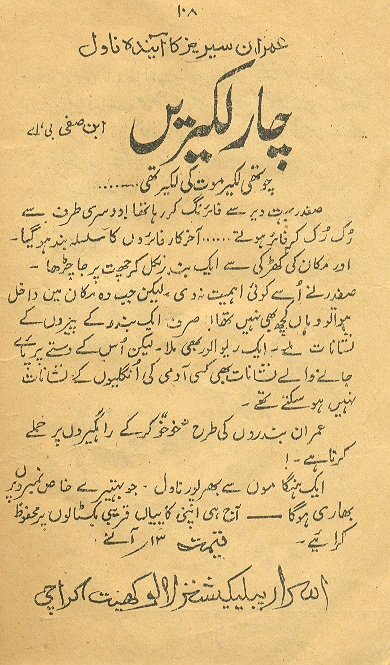 ۱۰۸
عمران سیریز کا آیندہ ناول
چار لکیریں
ابن صفی بی، اے
چوتھی لکیر موت کی لکیر تھی........
صفدر بہت دیر سے فائرنگ کر رہا تھا اور دوسری طرف سے
رُک رُک کر فائر ہوتے ...... آخر کار فائروں کا سلسلہ بند ہو گیا۔
اور مکان کی کھڑکی سے ایک بندر نکل کر چھت پر جا چڑھا۔
صفدر نے اُسے کوئی اہمیت نہ دی۔ لیکن جب وہ مکان میں داخل
ہوا تو وہاں کچھ بھی نہیں تھا! صرف ایک بندر کے پیروں کے
نشانات ملے۔ ایک ریوالور بھی ملا۔ لیکن اُس کے دستے پر پائے
جانے والے نشانات بھی کسی آدمی کی اُنگلیوں کے نشانات
نہیں ہو سکتے تھے۔
عمران بندروں کی طرح "خوخو" کر کے راہگیروں پر حملے
کرتا ہے۔!
ایک ہنگاموں سے بھر پور ناول۔ جو بہتیرے خاص نمبروں پر
بھاری ہوگا —— آج ہی اپنی کاپیاں قریبی بکسٹالوں پر محفوظ
کرائیے۔
قیمت ۱۳ آنے
اسرار پبلیکیشنز لالوکھیت کراچی